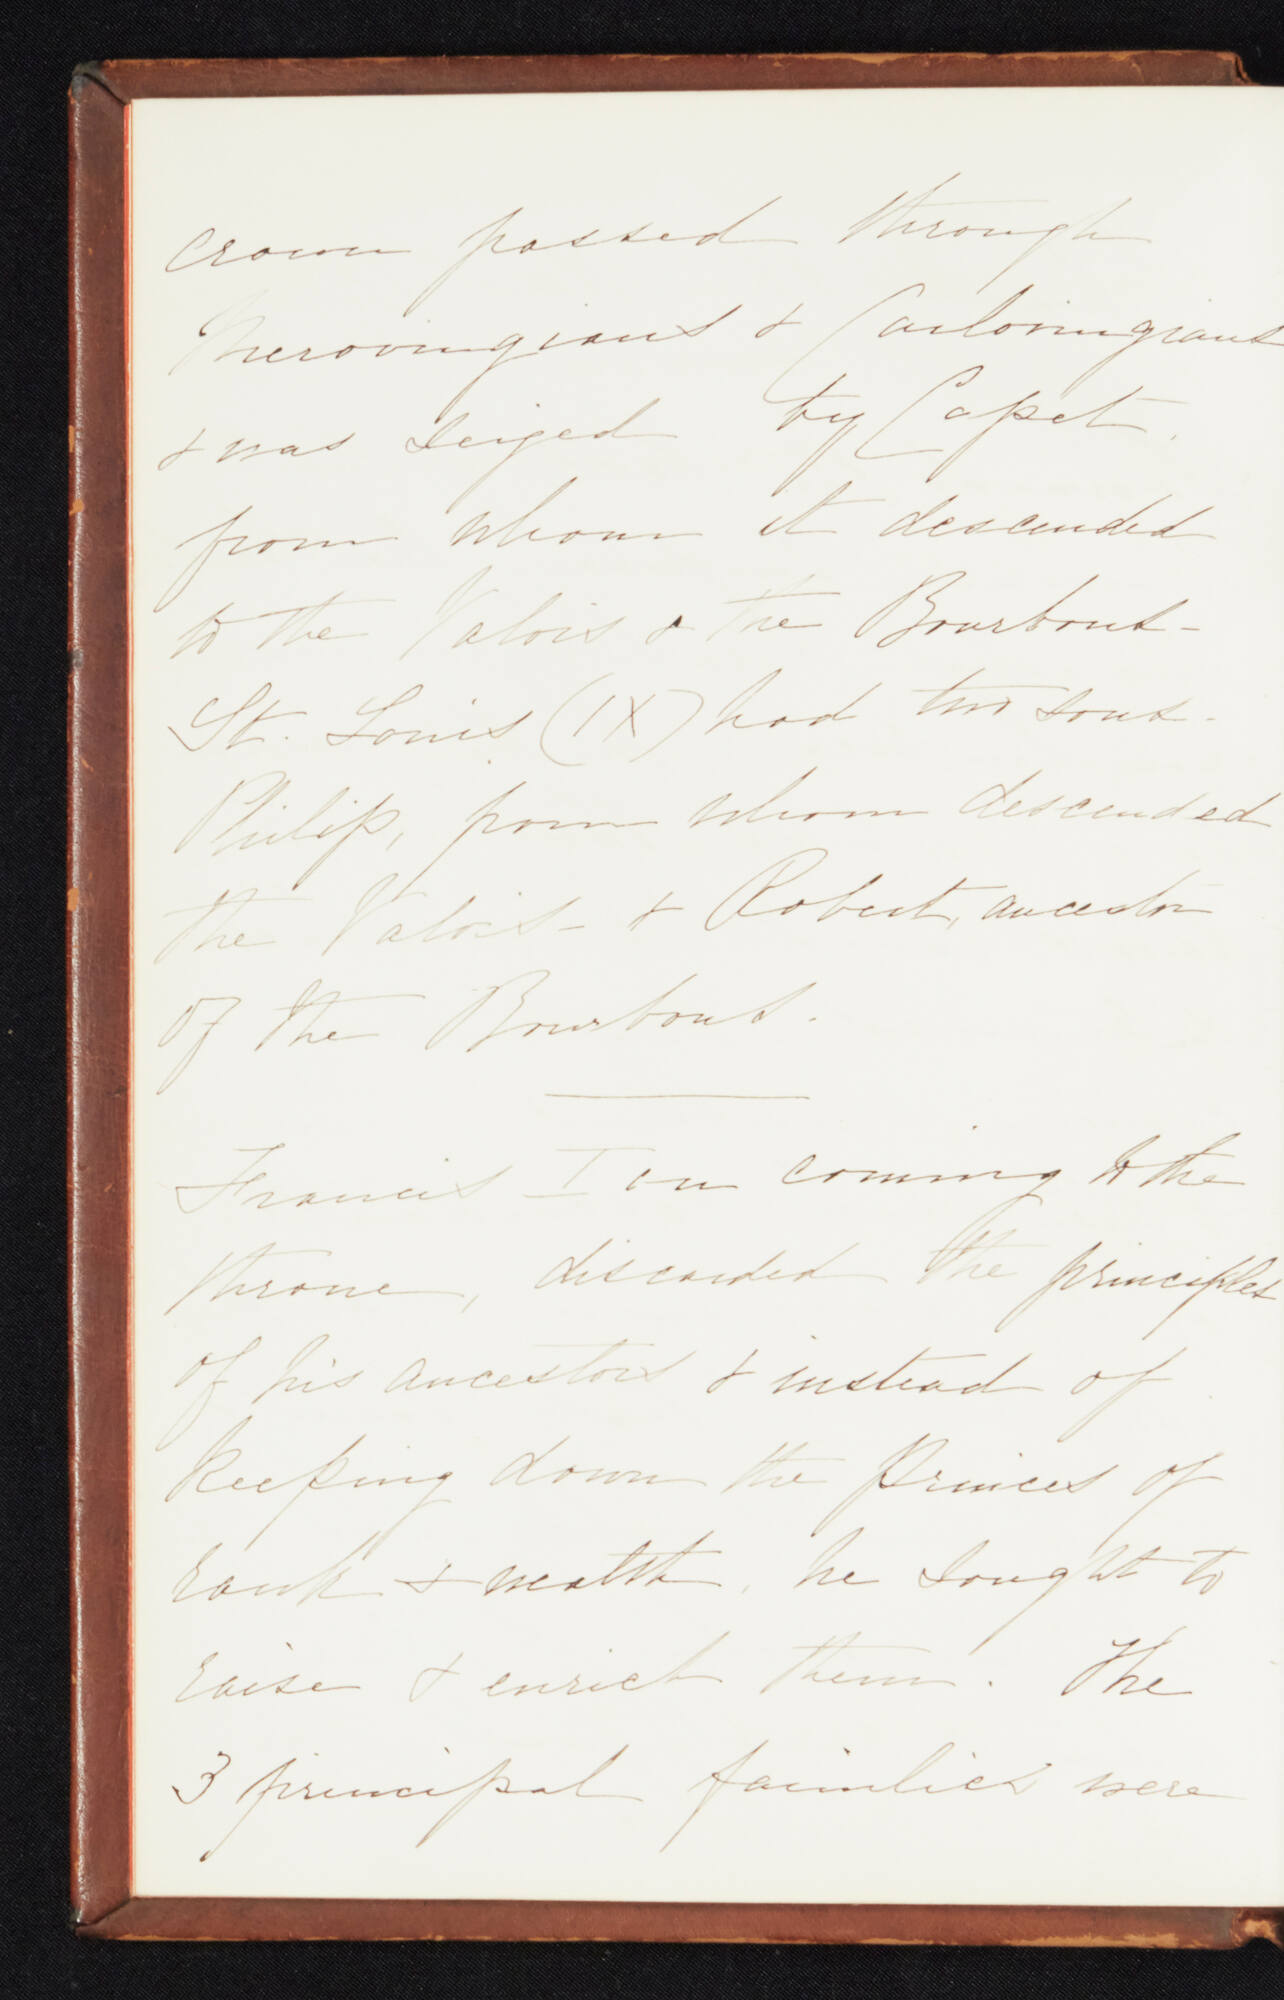 crown passed through
Merovingians & Carlovingians
& was seized by Capet,
from whom it descended
to the Valois & the Bourbons -
St. Louis (IX) had two sons -
Philip, from whom descended
the Valois - & Robert, ancestor
of the Bourbons.
Francis I on coming to the
throne, discarded the principles
of his ancestors & instead of
keeping down the Princes of
rank & wealth, he sought to
raise & enrich them. The
3 principal families were